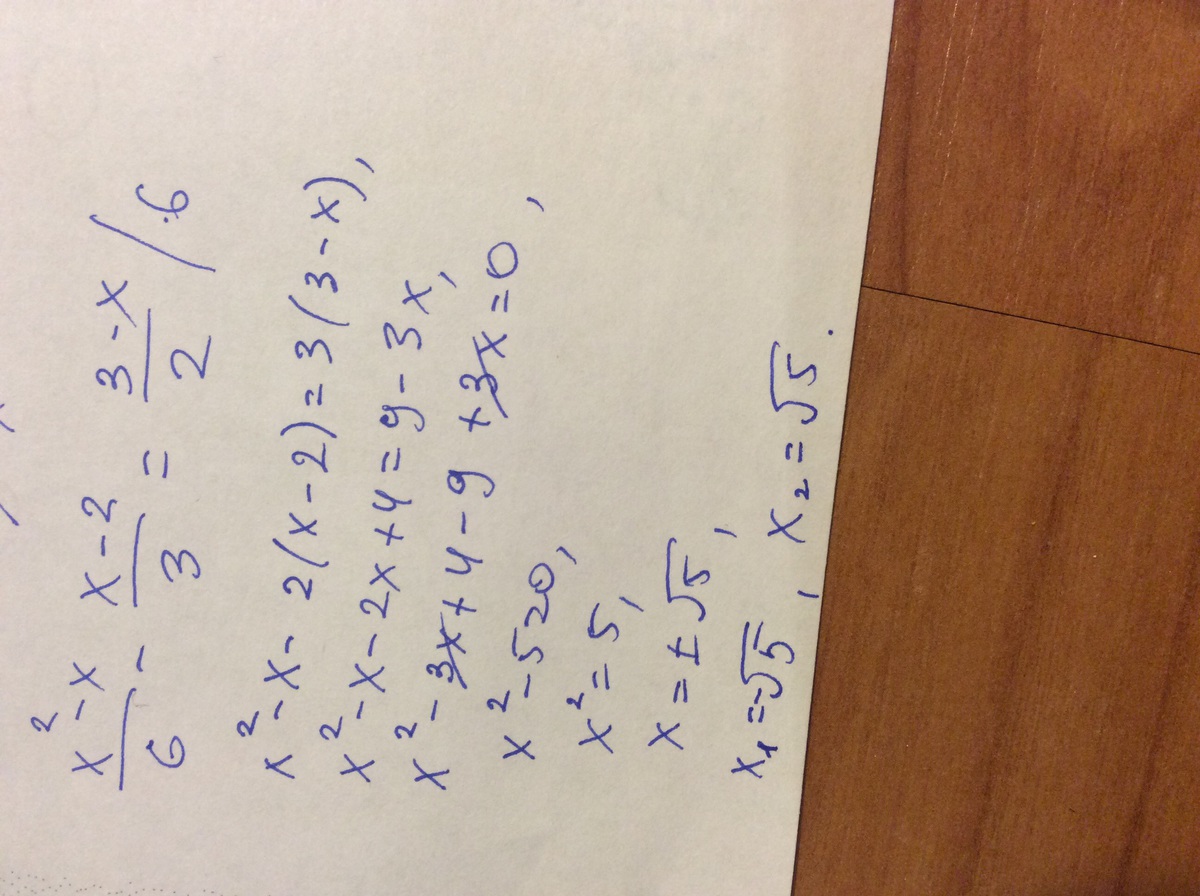 (x²-x)/6 - (x-2)/3 = (3-x)/2 / ·6
x²-x-2(x-2)=3(3-x),
x²-x-2x+4=9-3x,
x²-3x+4-9+3x=0,
x²-5=0,
x²=5,
x=±√5,
x₁=-√5, x₂=√5.